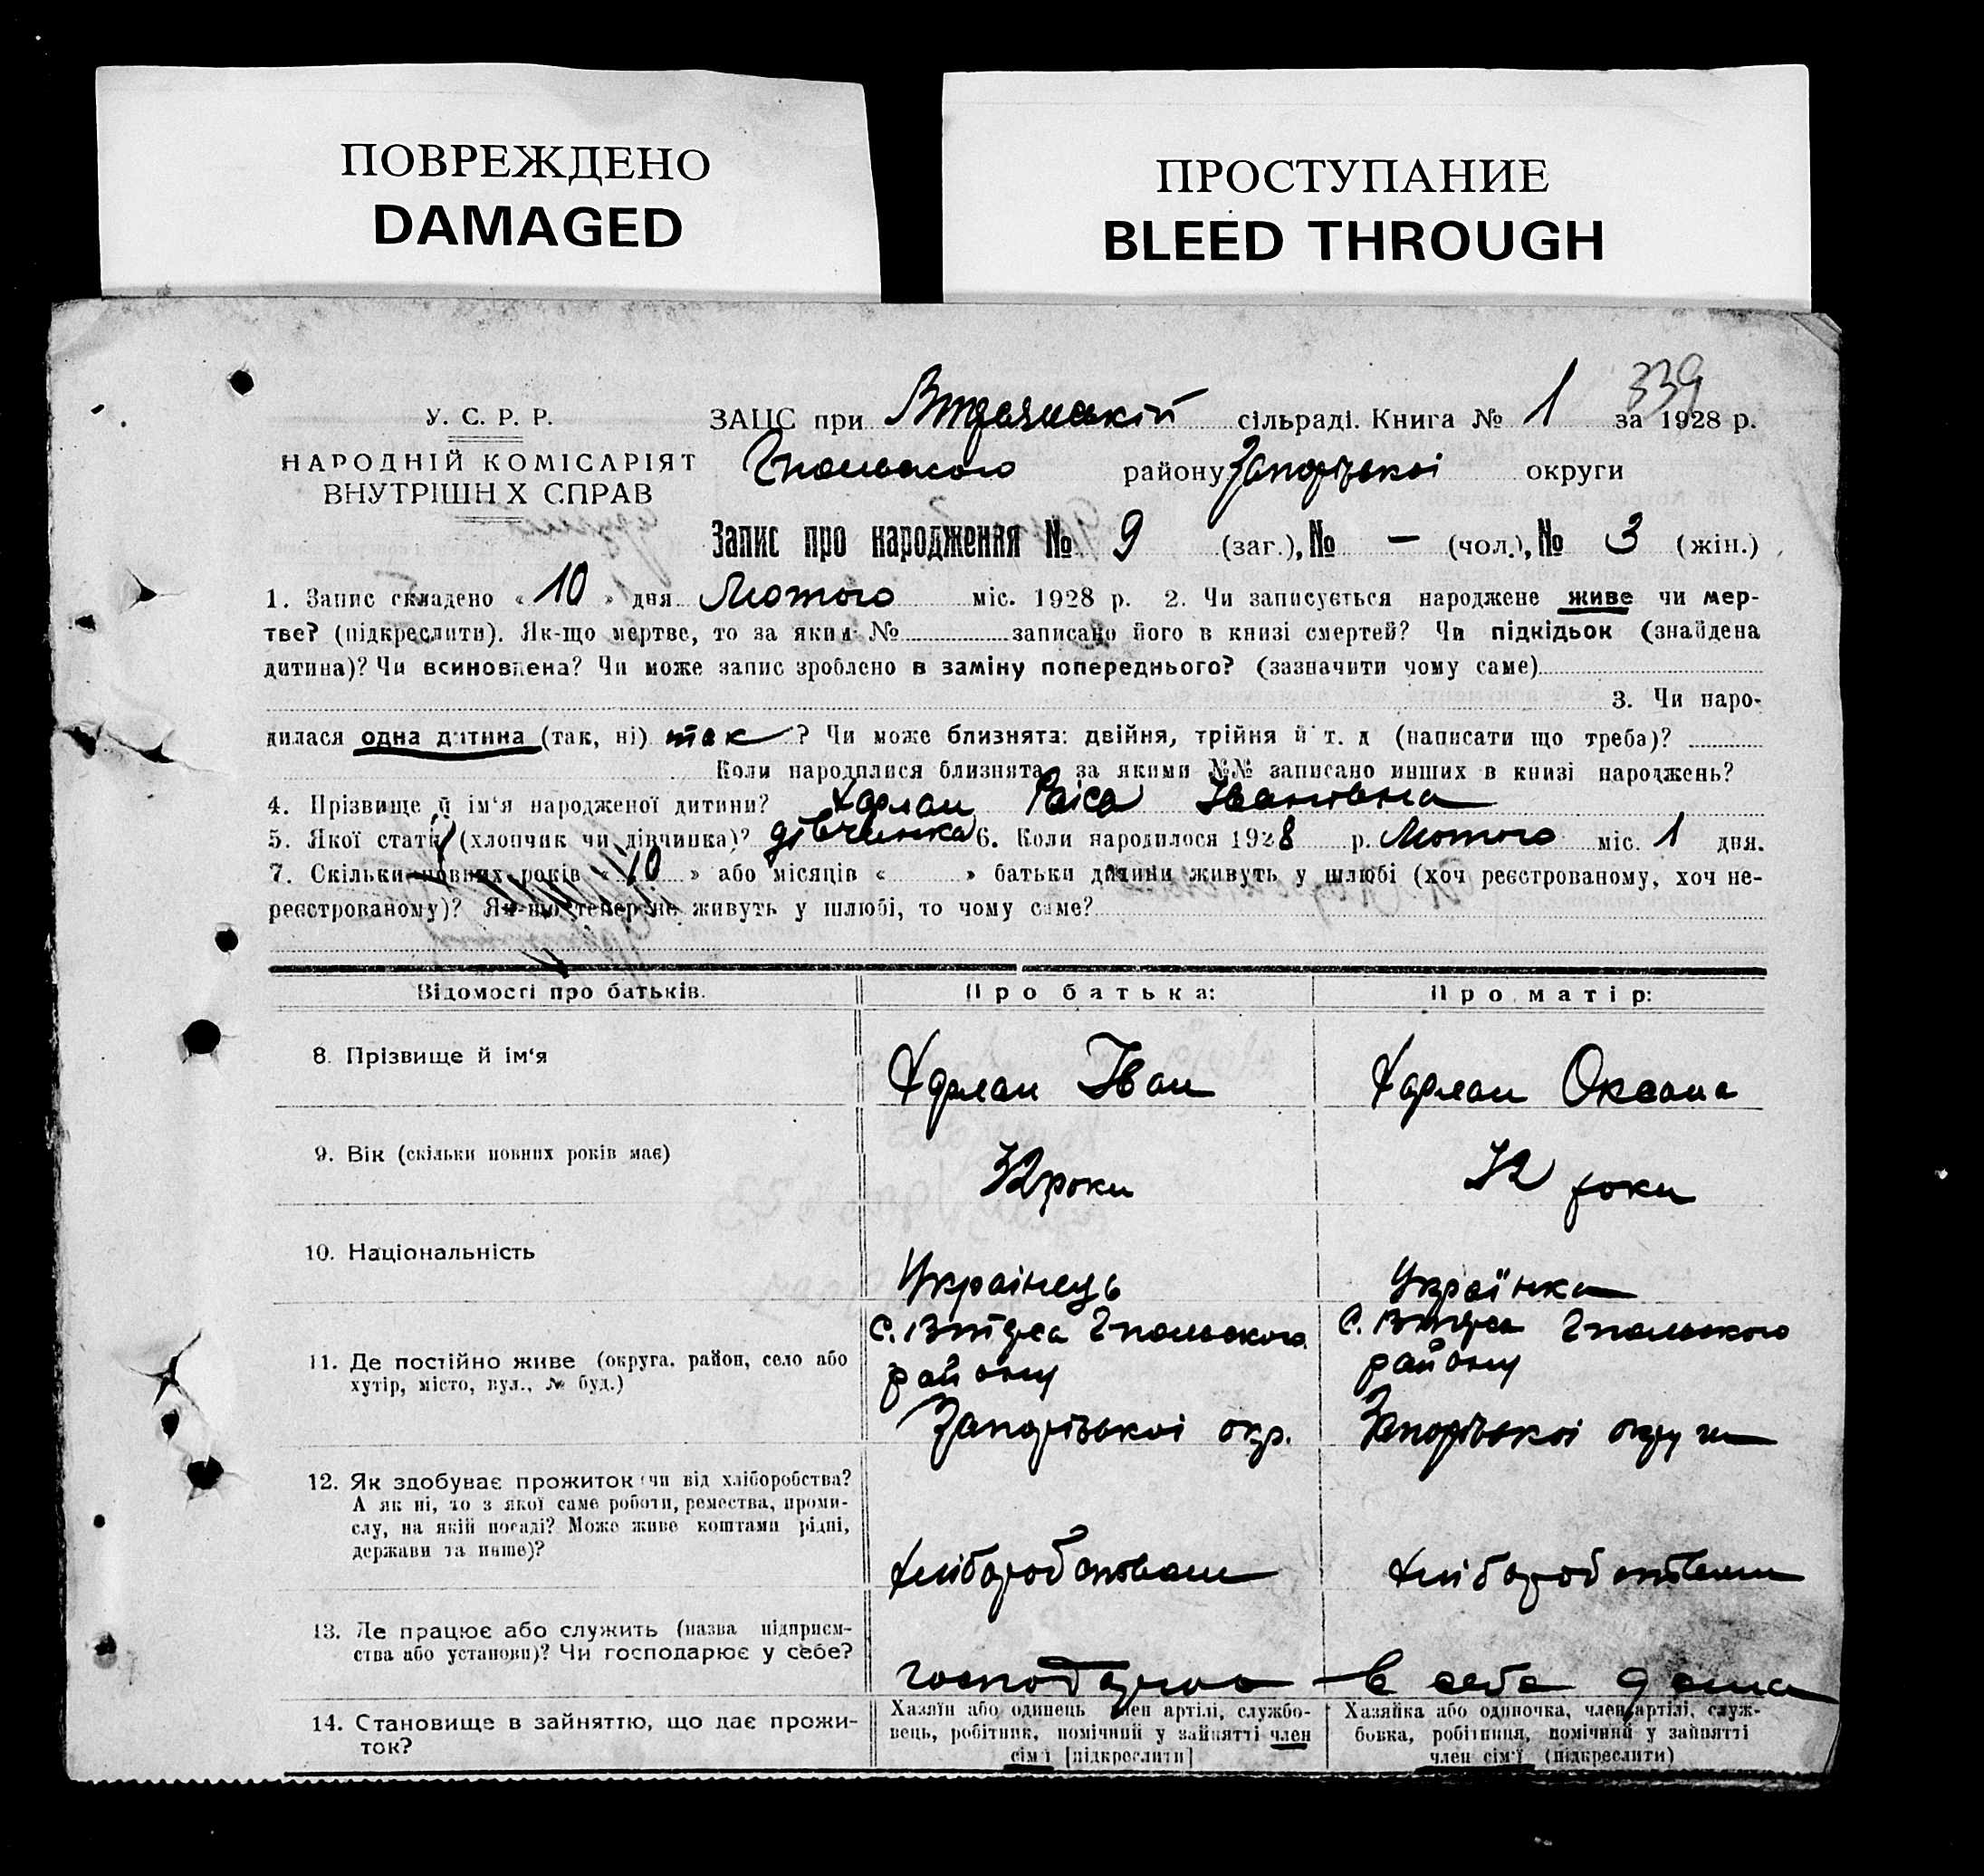 ПОВРЕЖДЕНО
DAMAGED
ПРОСТУПАНИЕ
BLEED THROUGH
339
У. С. Р. Р.
НАРОДНІЙ КОМІСАРІЯТ
ВНУТРІШН Х СПРАВ
ЗАЦС при сільраді. Книга № 1 за 1928 р.
району Запорізької округи
Запис про народження № 9 (заг.), № — (чол.), № 3 (жін.)
1. Запис складено « 10 » дня Лютого міс. 1928 р. 2. Чи записується народжене живе чи мер-
тве? (підкреслити). Як-що мертве, то за яким № записано його в книзі смертей? Чи підкідьок (знайдена
дитина)? Чи всиновлена? Чи може запис зроблено в заміну попереднього? (зазначити чому саме)
3. Чи наро-
дилася одна дитина (так, ні) так ? Чи може близнята: двійня, трійня й т. д (написати що треба)?
Коли народилися близнята, за якими №№ записано инших в книзі народжень?
4. Прізвище й ім'я народженої дитини? Харлан Раіса Івановна
5. Якої статі (хлопчик чи дівчинка)? дівчинка 6. Коли народилося 1928 р. Лютого міс. 1 дня.
7. Скільки повних років « 10 » або місяців « » батьки дитини живуть у шлюбі (хоч реєстрованому, хоч не-
реєстрованому)? Як-що тепер не живуть у шлюбі, то чому саме?
Відомості про батьків. Про батька: Про матір:
8. Прізвище й ім'я Харлан Іван Харлан Оксана
9. Вік (скільки повних років має) 32 роки 32 роки
10. Національність Українець Українка
11. Де постійно живе (округа, район, село або
хутір, місто, вул., № буд.)
району району
Запорізькоі окр. Запорізькоі округи
12. Як здобуває прожиток (чи від хліборобства?
А як ні, то з якої саме роботи, ремества, проми-
слу, на якій посаді? Може живе коштами рідні,
держави та инше)?
хліборобством хліборобством
13. Де працює або служить (назва підприєм-
ства або установи)? Чи господарює у себе?
в себе дома
14. Становище в зайняттю, що дає прожи-
ток?
Хазяїн або одинець член артілі, службо-
вець, робітник, помічний у зайнятті член
сім'ї [підкреслити]
Хазяйка або одиночка, член артілі, служ-
бовка, робітниця, помічний у зайнятті
член сім'ї (підкреслити)